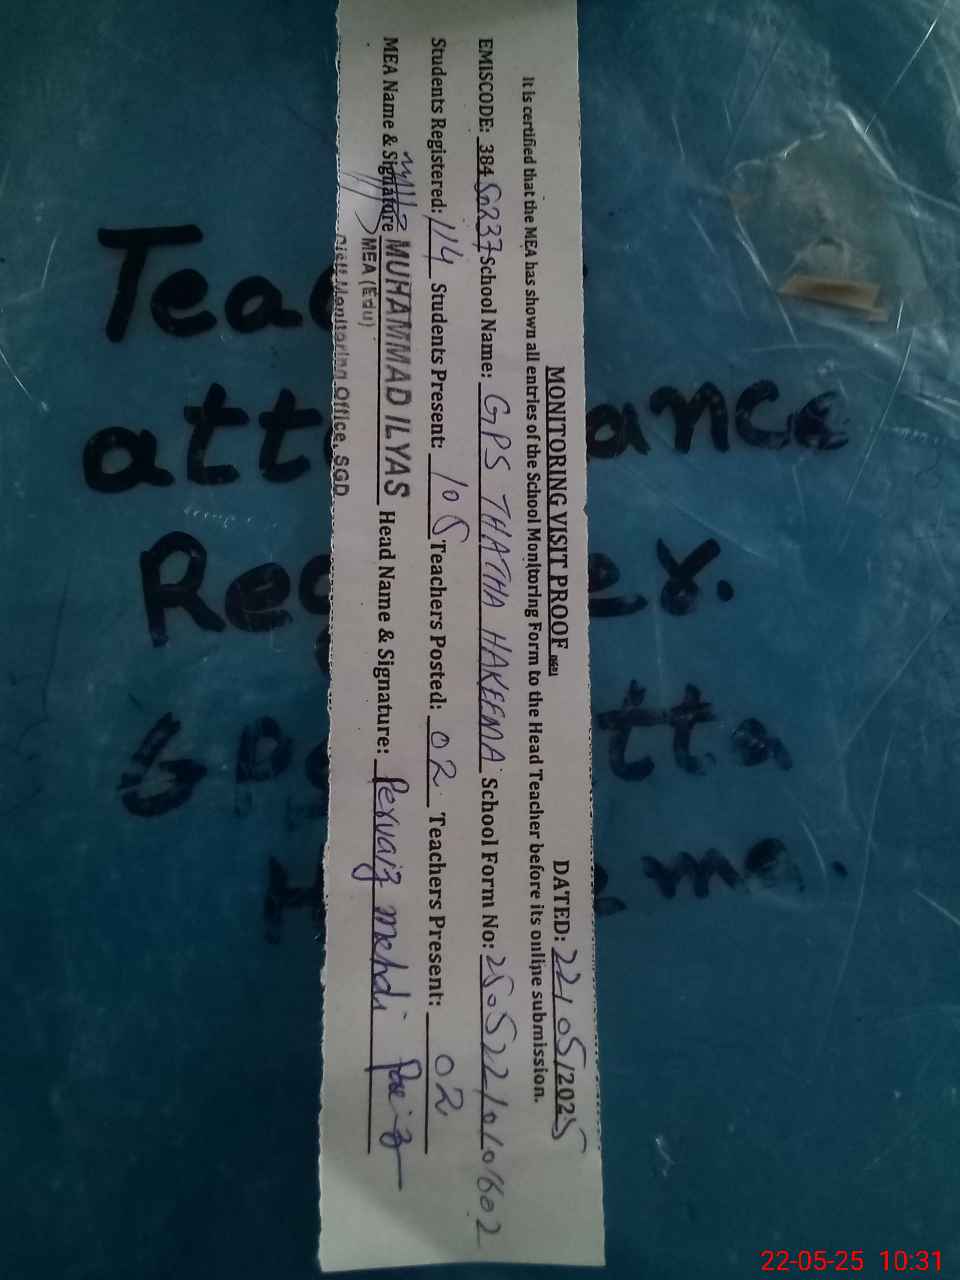 MONITORING VISIT PROOF DATED: 22/05/2025
It is certified that the MEA has shown all entries of the School Monitoring Form to the Head Teacher before its online submission.
EMISCODE: 384 50237 School Name: GPS THATHA HAKEEMA School Form No: 250522/010602
Students Registered: 114 Students Present: 105 Teachers Posted: 02 Teachers Present: 02
MEA Name & Signature MUHAMMAD ILYAS Head Name & Signature: Pervaiz mehdi
MEA (Edu)
Distt Monitoring Office, SGD
Tea
att ance
Re
ma
22-05-25 10:31